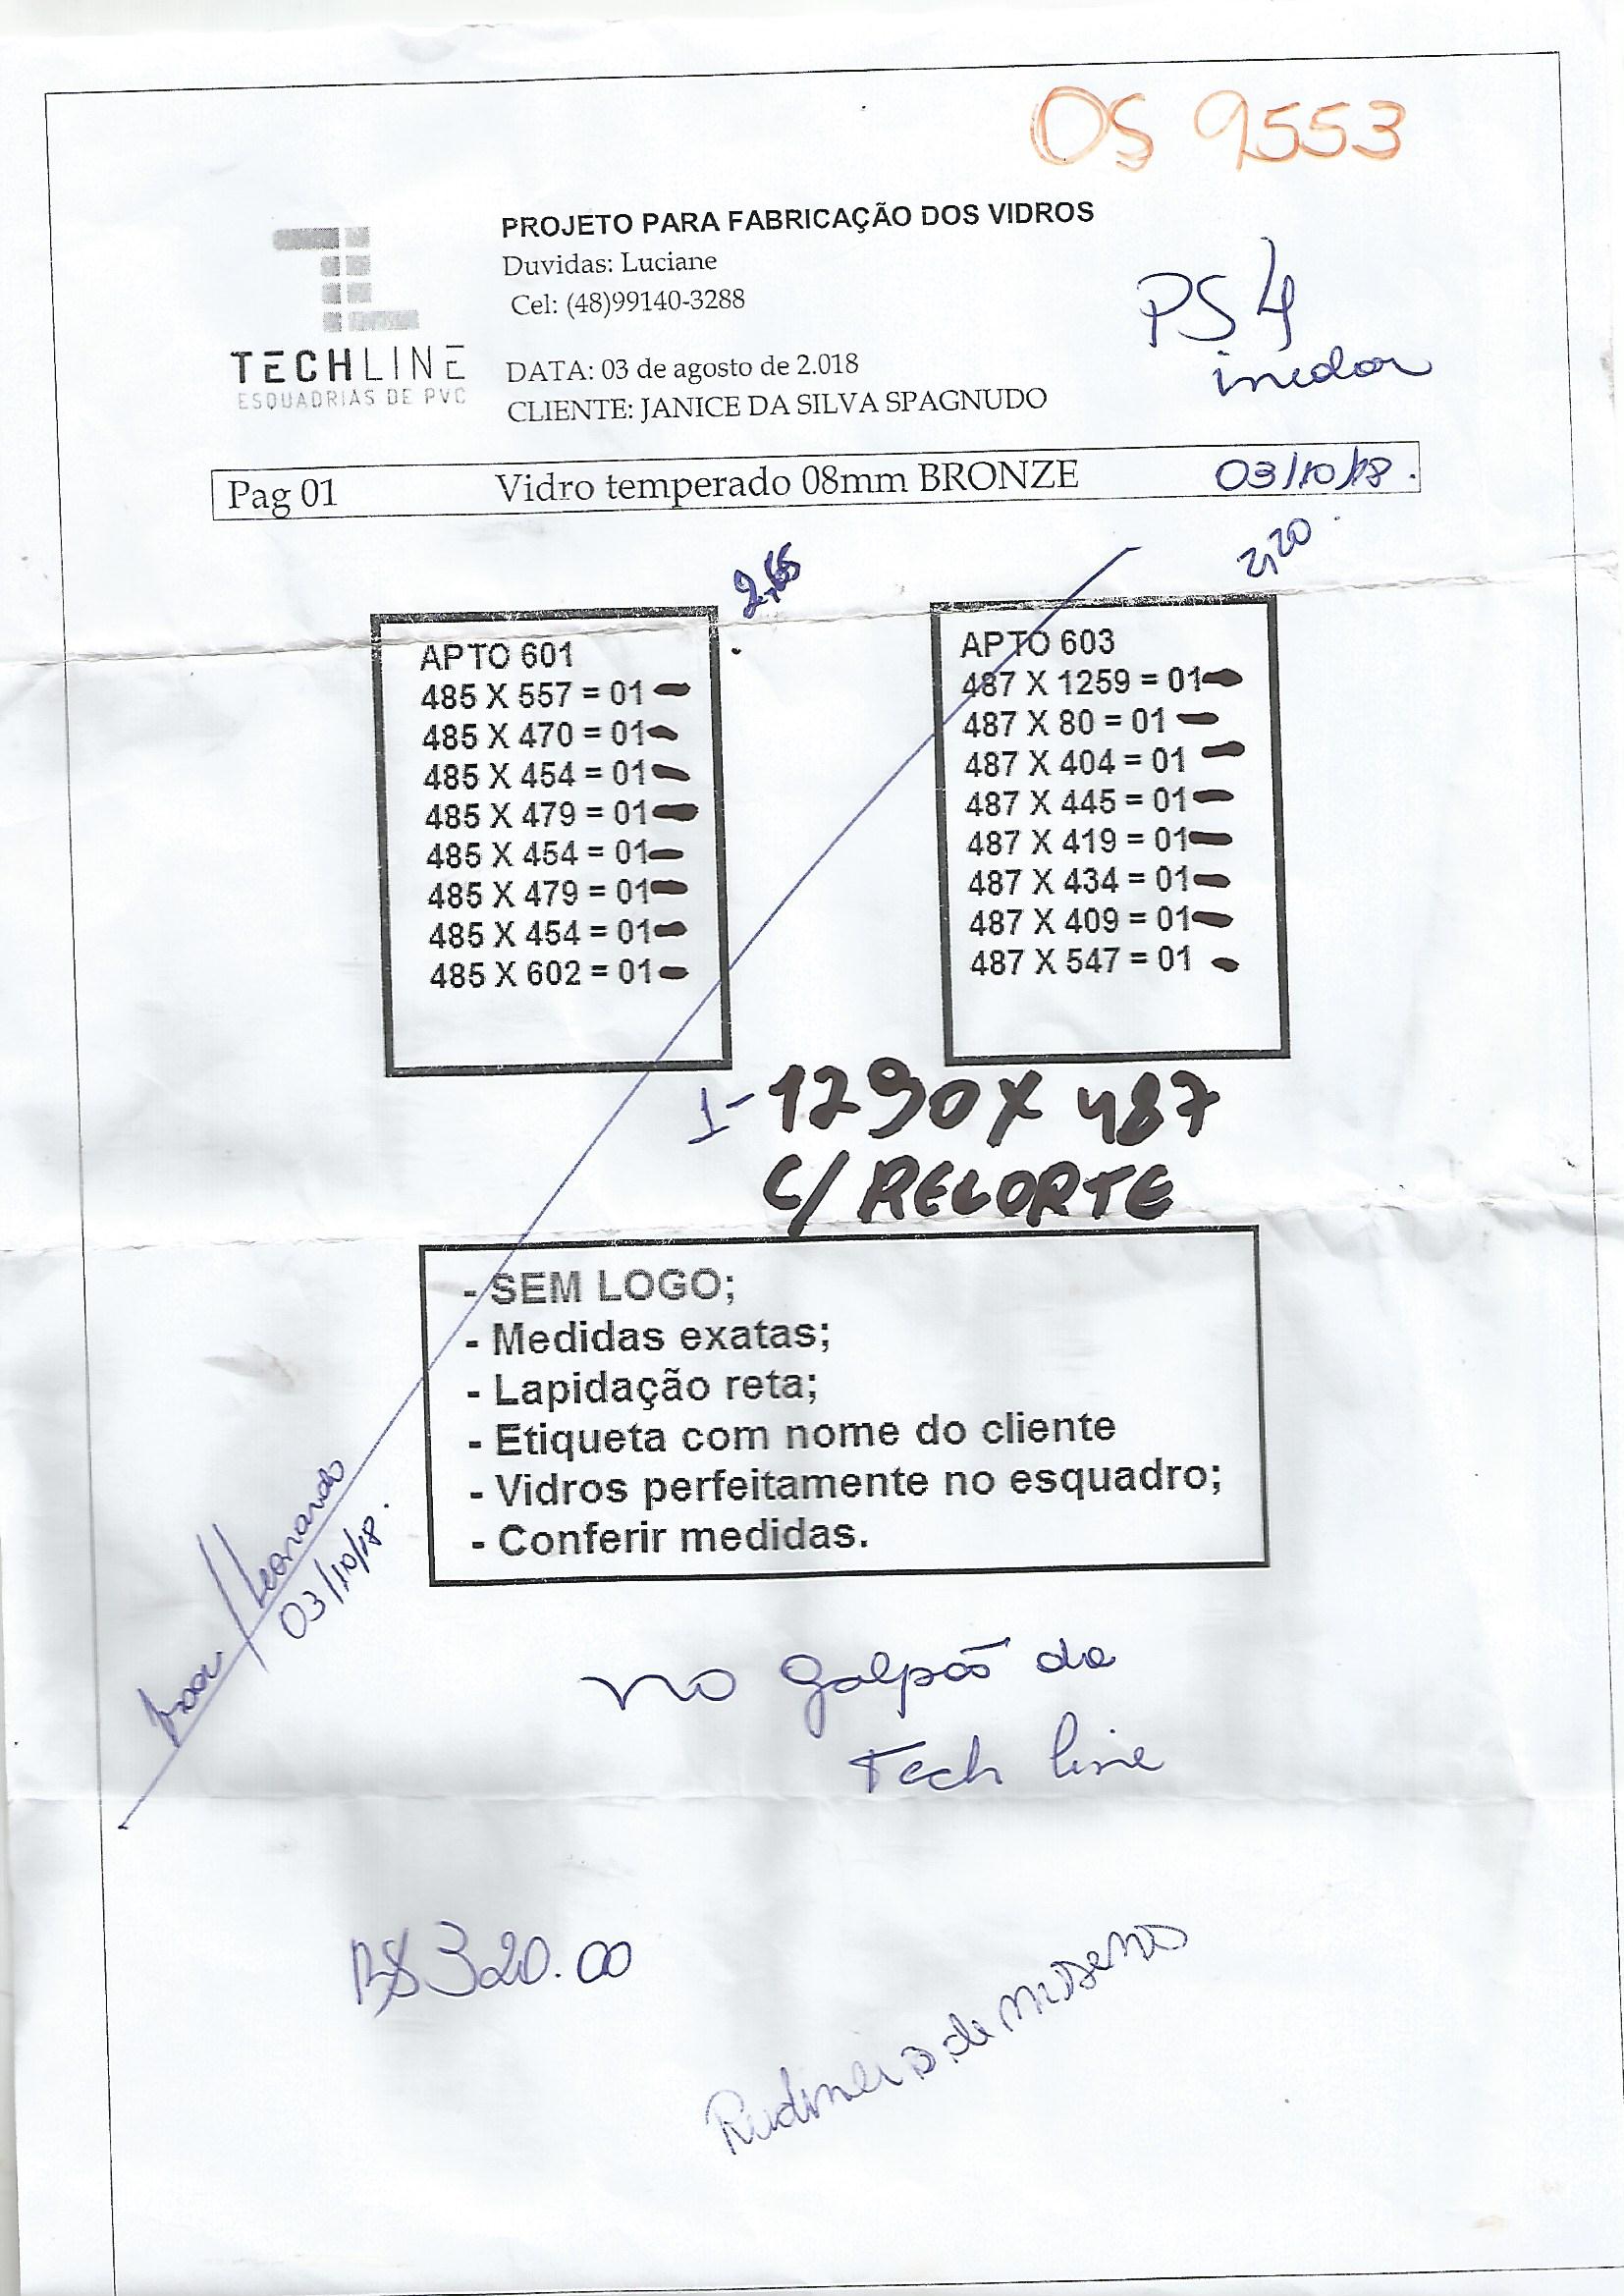 OS 9553
PROJETO PARA FABRICAÇÃO DOS VIDROS
Duvidas: Luciane
Cel: (48)99140-3288
PS 4
incolor
TECHLINE
ESQUADRIAS DE PVC
DATA: 03 de agosto de 2.018
CLIENTE: JANICE DA SILVA SPAGNUDO
Pag 01 Vidro temperado 08mm BRONZE 03/10/18.
2,65
2,20
APTO 601
485 X 557 = 01
485 X 470 = 01
485 X 454 = 01
485 X 479 = 01
485 X 454 = 01
485 X 479 = 01
485 X 454 = 01
485 X 602 = 01
APTO 603
487 X 1259 = 01
487 X 80 = 01
487 X 404 = 01
487 X 445 = 01
487 X 419 = 01
487 X 434 = 01
487 X 409 = 01
487 X 547 = 01
1-1290X 487
C/ RECORTE
- SEM LOGO;
- Medidas exatas;
- Lapidação reta;
- Etiqueta com nome do cliente
- Vidros perfeitamente no esquadro;
- Conferir medidas.
/Leonardo
03/10/18.
no galpão da
Tech line
R$320.00